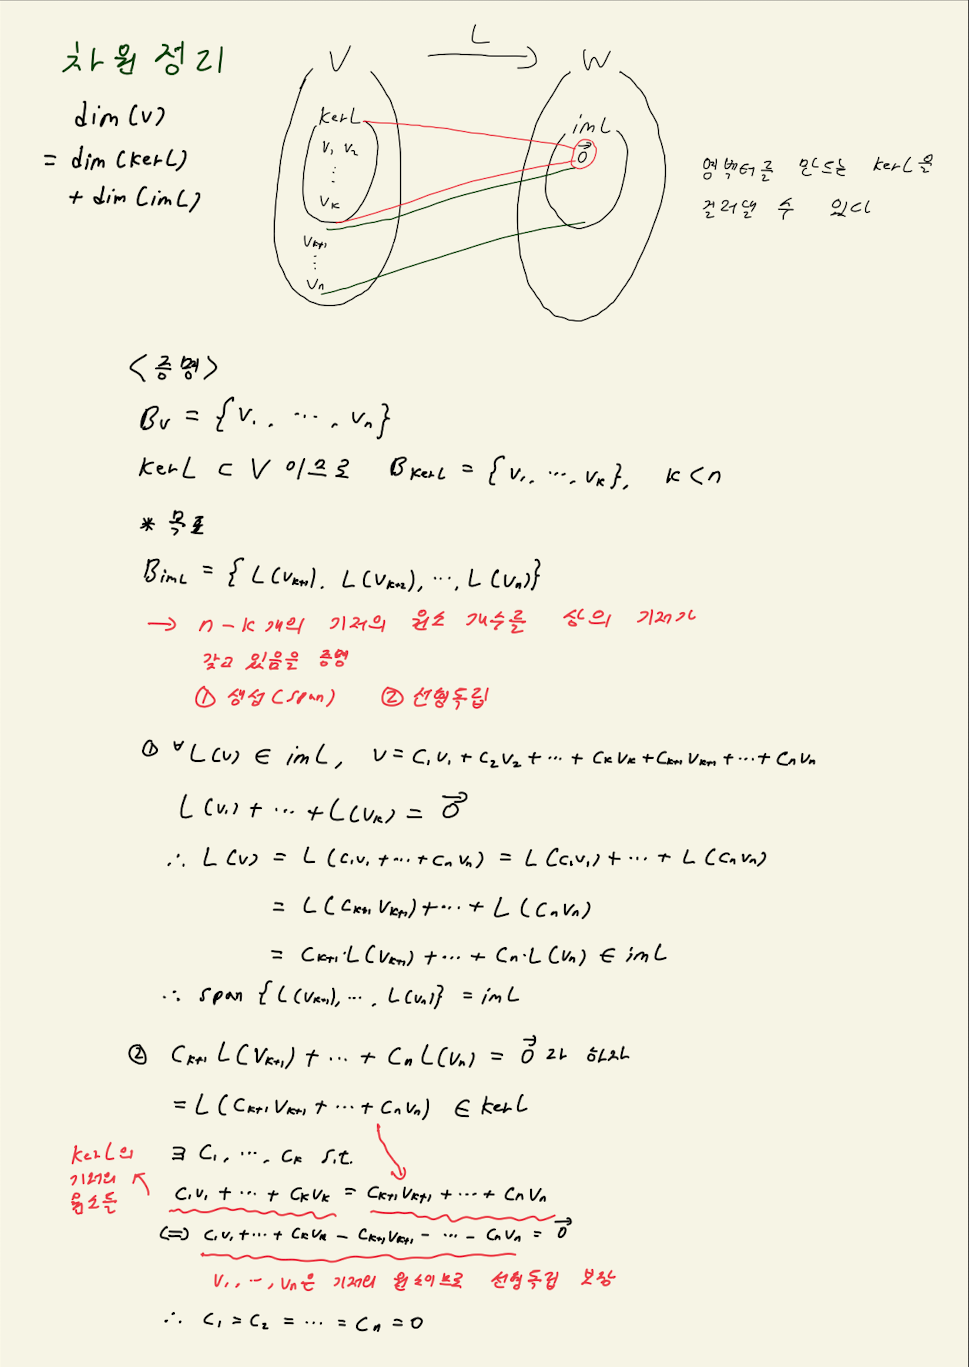 차원 정리
dim(V)
= dim(kerL)
+ dim(imL)
V
L
W
kerL
v₁ v₂
⋮
vₖ
vₖ₊₁
⋮
vₙ
imL
0⃗
영벡터를 만드는 kerL을
걸러낼 수 있다
<증명>
Bv = {v₁, ⋯, vₙ}
kerL ⊂ V 이므로 BkerL = {v₁, ⋯, vₖ}, k<n
* 목표
BimL = {L(vₖ₊₁), L(vₖ₊₂), ⋯, L(vₙ)}
→ n-k개의 기저의 원소 개수를 상의 기저가
갖고 있음을 증명
① 생성(span) ② 선형독립
① ∀L(v) ∈ imL, v = c₁v₁ + c₂v₂ + ⋯ + cₖvₖ + cₖ₊₁vₖ₊₁ + ⋯ + cₙvₙ
L(v₁) + ⋯ + L(vₖ) = 0⃗
∴ L(v) = L(c₁v₁ + ⋯ + cₙvₙ) = L(c₁v₁) + ⋯ + L(cₙvₙ)
= L(cₖ₊₁vₖ₊₁) + ⋯ + L(cₙvₙ)
= cₖ₊₁·L(vₖ₊₁) + ⋯ + cₙ·L(vₙ) ∈ imL
∴ span {L(vₖ₊₁), ⋯, L(vₙ)} = imL
② cₖ₊₁L(vₖ₊₁) + ⋯ + cₙL(vₙ) = 0⃗ 라 하자
= L(cₖ₊₁vₖ₊₁ + ⋯ + cₙvₙ) ∈ kerL
∃ c₁, ⋯, cₖ s.t.
kerL의
기저의
원소들
c₁v₁ + ⋯ + cₖvₖ = cₖ₊₁vₖ₊₁ + ⋯ + cₙvₙ
(=) c₁v₁ + ⋯ + cₖvₖ - cₖ₊₁vₖ₊₁ - ⋯ - cₙvₙ = 0⃗
v₁, ⋯, vₙ은 기저의 원소이므로 선형독립 보장
∴ c₁ = c₂ = ⋯ = cₙ = 0